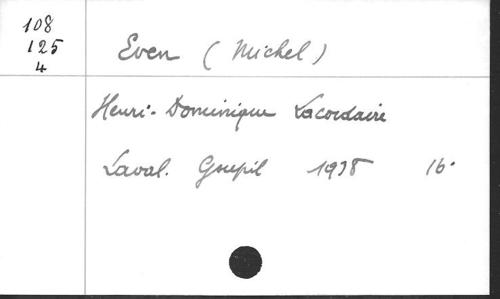 108
125
4
Even (Michel)
Henri-Dominique Lacordaire
Laval. Goupil 1938 16°